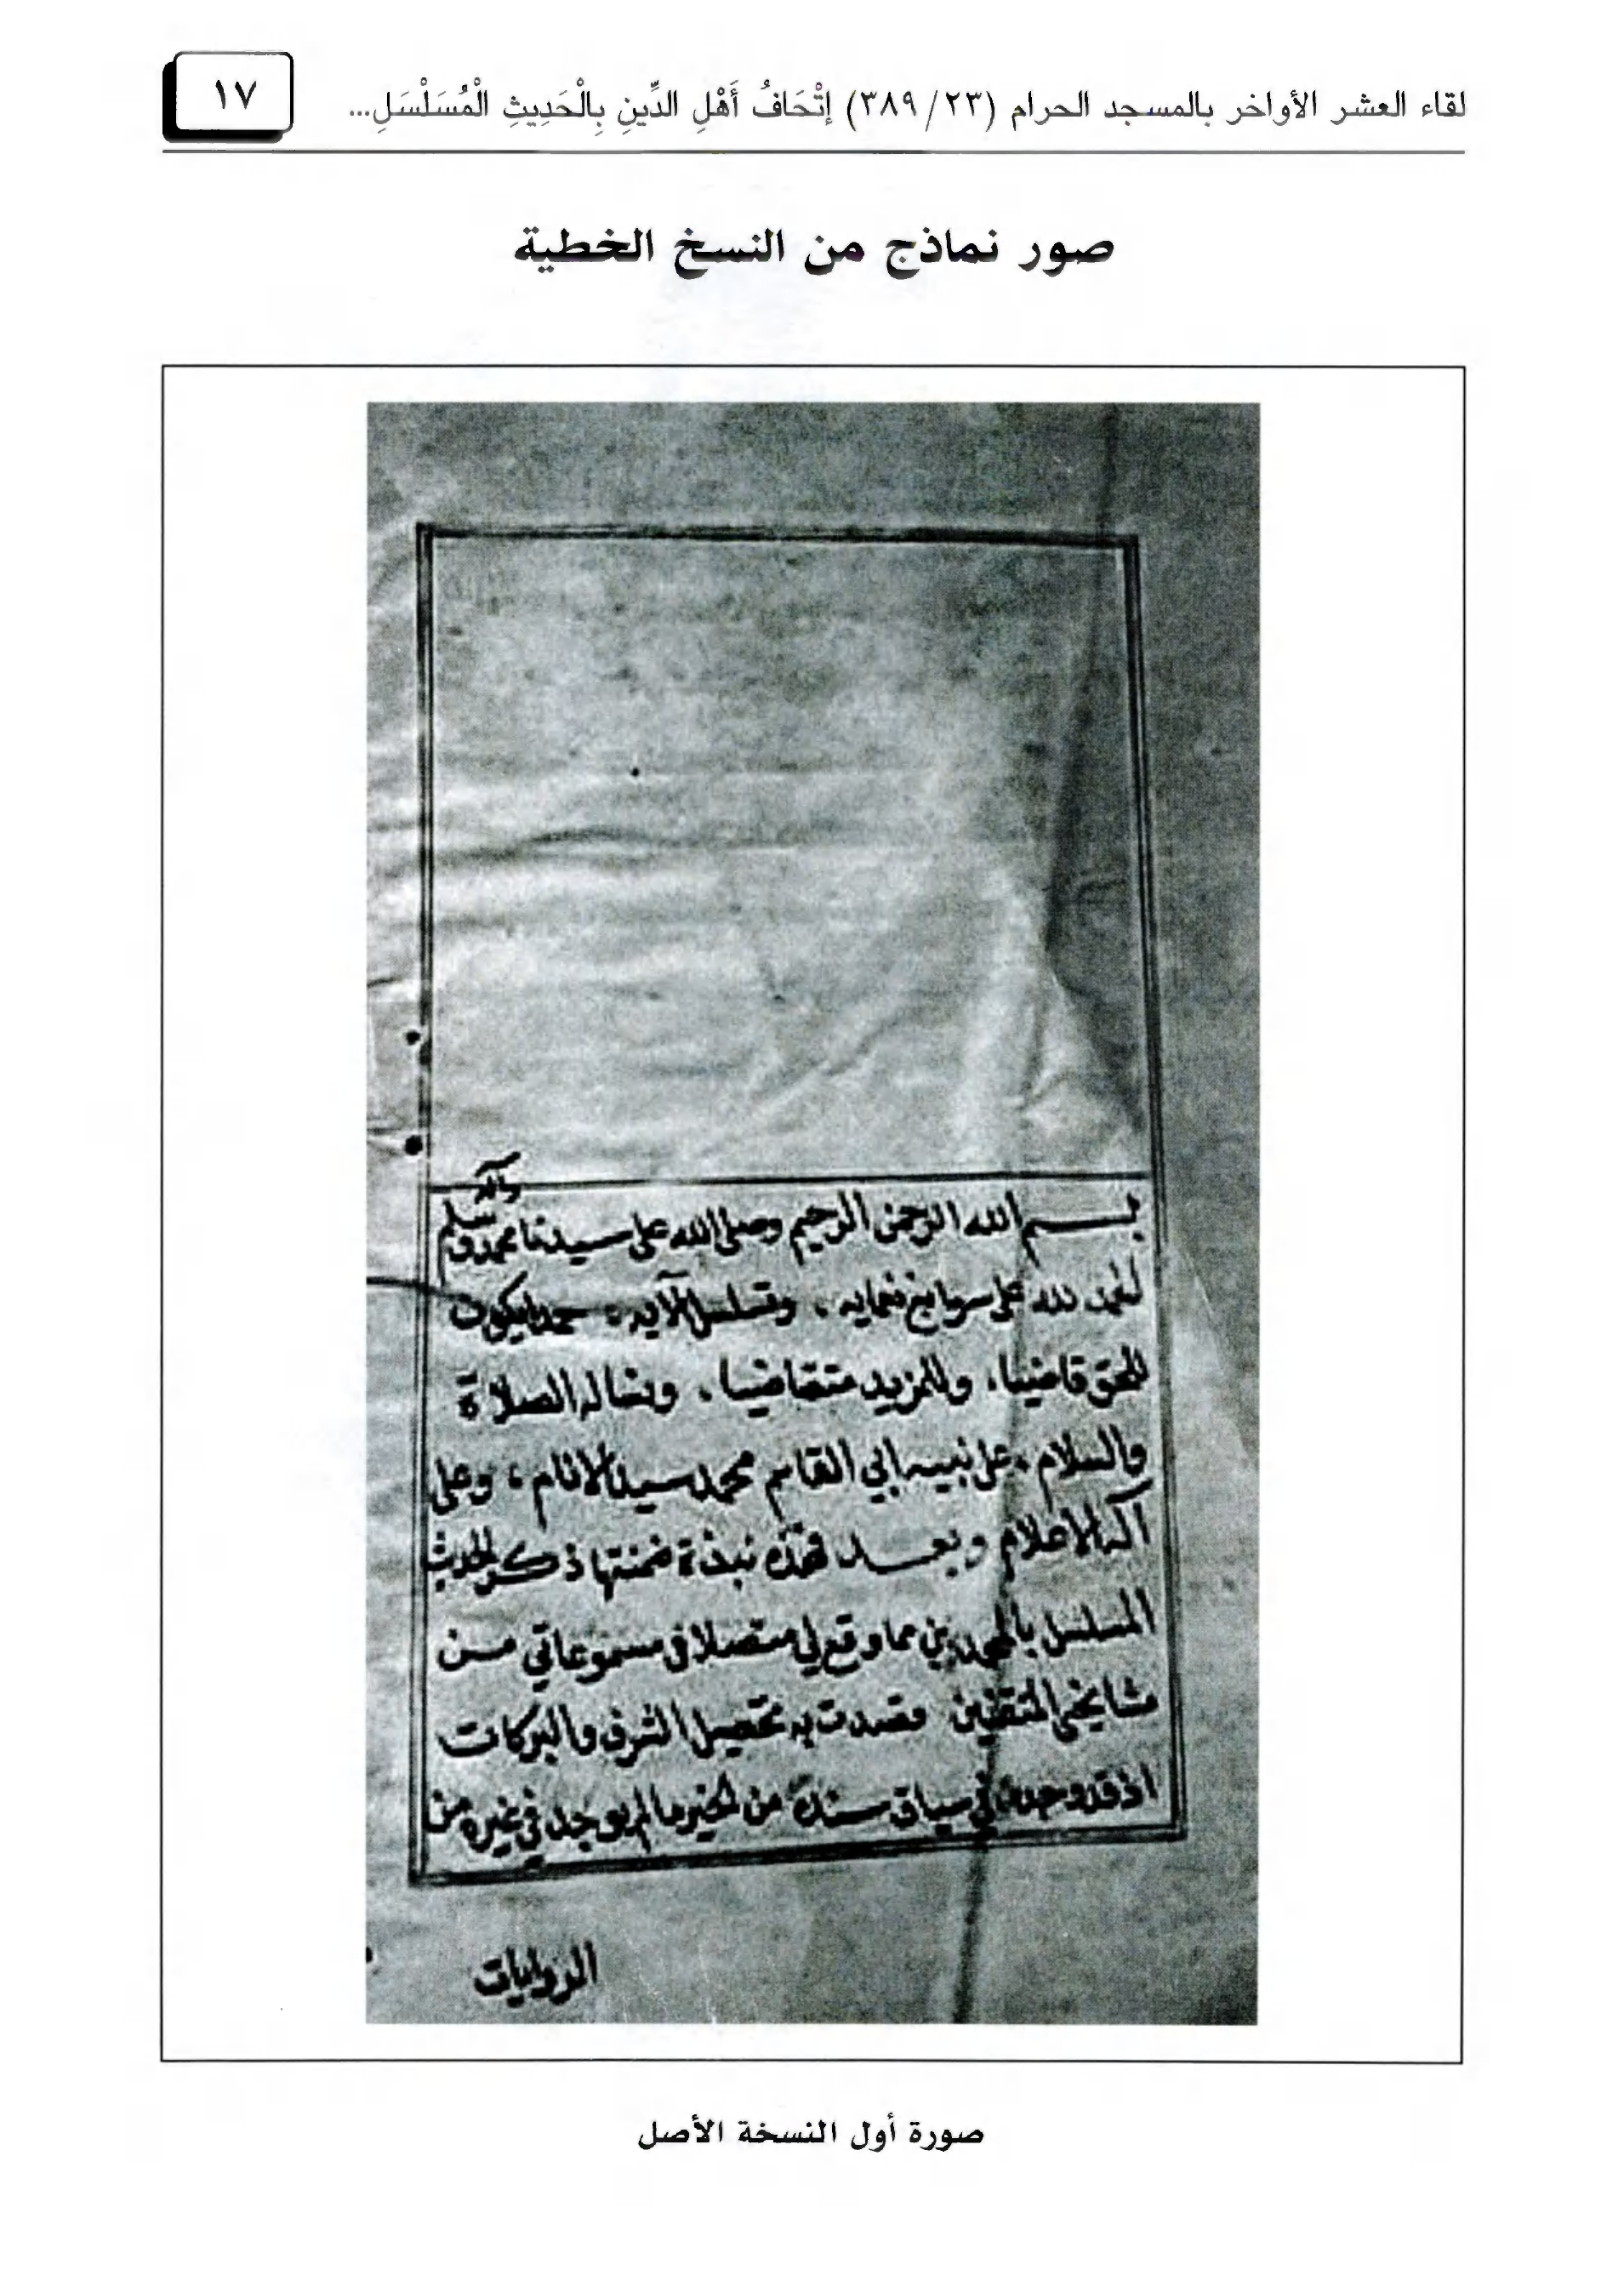 لقاء العشر الأواخر بالمسجد الحرام (٢٣/ ٣٨٩) إتْحَافُ أَهْلِ الدِّينِ بِالْحَدِيثِ الْمُسَلْسَلِ...
١٧
صور نماذج من النسخ الخطية
بسم الله الرحمن الرحيم وصلى الله على سيدنا محمد وآله وسلم
الحمد لله على سوابغ نعمايه، وتسلسل آلايه، حمدا يكون
للحق قاضيا، وللمزيد متقاضيا، ونساله الصلاة
والسلام، على نبيه ابي القاسم محمد سيد الانام، وعلى
آله الاعلام وبعد فهذه نبذة ضمنتها ذكر الحديث
المسلسل بالمحمدين مما وقع لي متصلا في مسموعاتي من
مشايخي المتقنين قصدت به تحصيل الشرف والبركات
اذ قد وجدت في سياق سنده من الخير ما لم يوجد في غيره من
الروايات
صورة أول النسخة الأصل